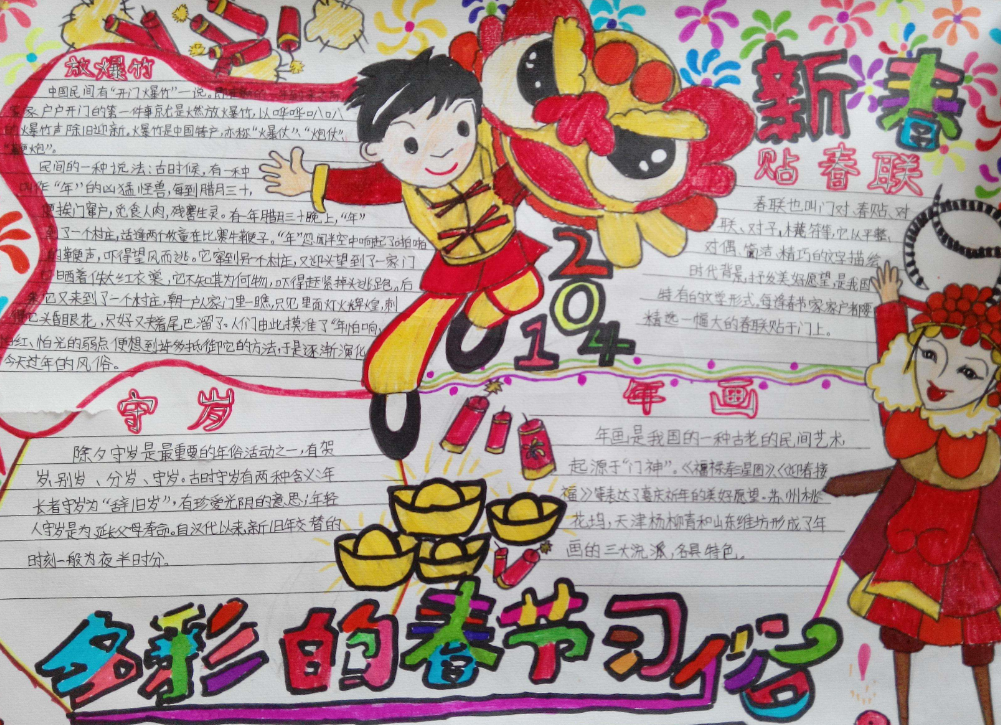 放爆竹
中国民间有"开门爆竹"一说。
户户开门的第一件事就是燃放爆竹,以哔哔叭叭
的爆竹声除旧迎新。爆竹是中国特产,亦称"爆仗"、"炮仗"、
"鞭炮"。
民间的一种说法:古时候,有一种
叫作"年"的凶猛怪兽,每到腊月三十,
便挨门窜户,觅食人肉,残害生灵。有一年腊月三十晚上,"年"
到了一个村庄,适逢两个牧童在比赛牛鞭子。"年"忽闻半空中响起了啪啪
的鞭声,吓得望风而逃。它窜到另一个村庄,又迎头望到了一家门
口晒着件大红衣裳,它不知其为何物,吓得赶紧掉头逃跑。后
来它又来到了一个村庄,朝一户人家门里一瞧,只见里面灯火辉煌,刺
得它头昏眼花,只好又夹着尾巴溜了。人们由此摸准了"年"怕响,
怕红、怕光的弱点,便想到许多抵御它的方法,于是逐渐演化
今天过年的风俗。
新春
贴春联
春联也叫门对、春贴、对
联、对子,
它以
对偶、简洁、精巧的文字描绘
时代背景,抒发美好愿望,是我国
特有的文学形式,每逢春节家家户户都要
精选一幅大的春联贴于门上。
2014
守岁
除夕守岁是最重要的年俗活动之一,有贺
岁、别岁、分岁、守岁。古时守岁有两种含义:年
长者守岁为"辞旧岁",有珍爱光阴的意思;年轻
人守岁是为延长父母寿命。自汉代以来,新旧年交替的
时刻一般为夜半时分。
年画
年画是我国的一种古老的民间艺术,
起源于"门神"。《福禄寿三星图》《迎春接
福》等表达了喜庆祈年的美好愿望。苏州桃
花坞,天津杨柳青和山东潍坊形成了年
画的三大流派,各具特色。
多彩的春节习俗